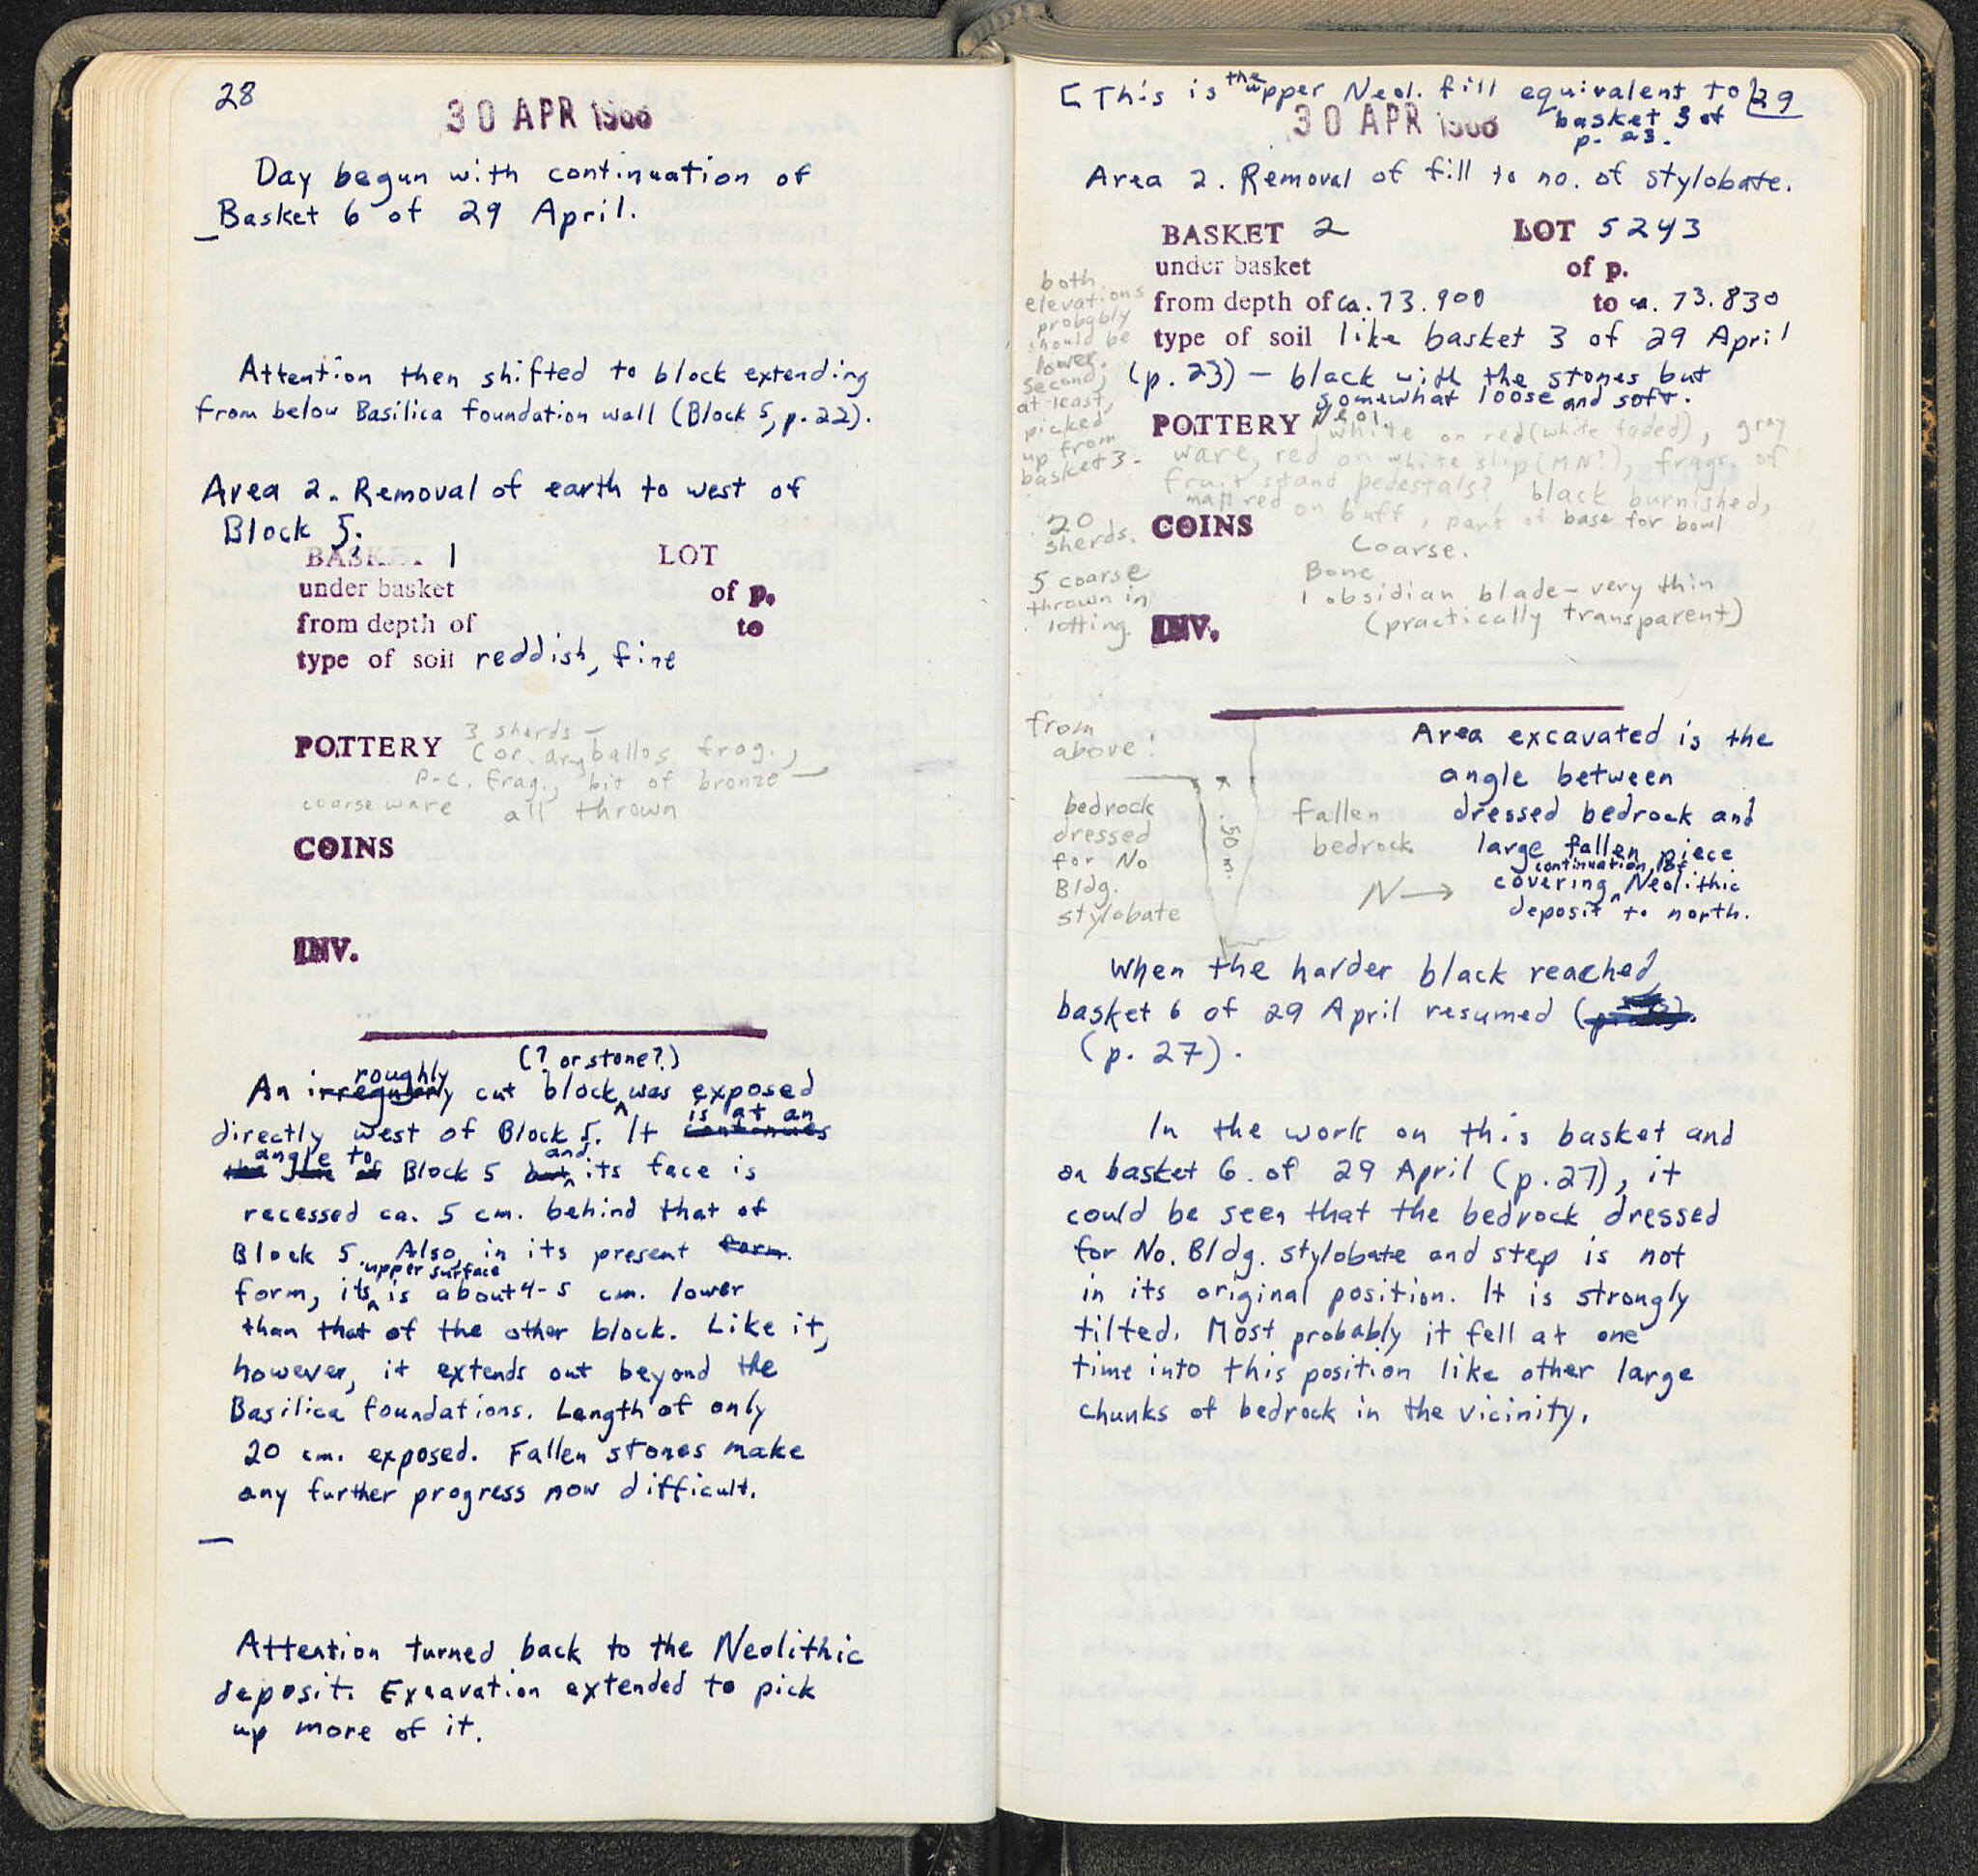 28
30 APR 1968
Day begun with continuation of
Basket 6 of 29 April.
Attention then shifted to block extending
from below Basilica foundation wall (Block 5, p. 22).
Area 2. Removal of earth to west of
Block 5.
BASKET 1 LOT
under basket of p.
from depth of to
type of soil reddish, fine
POTTERY 3 sherds –
Cor. aryballos frag.,
P-C. frag., bit of bronze –
coarse ware all thrown
COINS
INV.
(? or stone?)
roughly
An irregularly cut block was exposed
is at an
directly west of Block 5. It continues
angle to and
the line of Block 5 but its face is
recessed ca. 5 cm. behind that of
Block 5. Also, in its present form.
upper surface
form, its is about 4-5 cm. lower
than that of the other block. Like it,
however, it extends out beyond the
Basilica foundations. Length of only
20 cm. exposed. Fallen stones make
any further progress now difficult.
Attention turned back to the Neolithic
deposit. Excavation extended to pick
up more of it.
[This is the upper Neol. fill equivalent to
basket 3 of
p. 23.
29
30 APR 1968
Area 2. Removal of fill to no. of stylobate.
BASKET 2 LOT 5243
under basket of p.
from depth of ca. 73.900 to ca. 73.830
type of soil like basket 3 of 29 April
(p. 23) – black with the stones but
somewhat loose and soft.
both
elevations
probably
should be
lower.
Second,
at least,
picked
up from
basket 3.
POTTERY Neol.
white on red (white faded), gray
ware, red on white slip (MN?), frags. of
fruit stand pedestals? black burnished,
matt red on buff, part of base for bowl
COINS
Coarse.
20
sherds.
5 coarse
thrown in
lotting.
Bone
1 obsidian blade – very thin
(practically transparent)
INV.
from
above:
bedrock
dressed
for No
Bldg.
stylobate
.50 m.
fallen
bedrock
N →
Area excavated is the
angle between
dressed bedrock and
large fallen piece
continuation of
covering Neolithic
deposit to north.
When the harder black reached,
basket 6 of 29 April resumed
(p. 27).
In the work on this basket and
on basket 6 of 29 April (p. 27), it
could be seen that the bedrock dressed
for No. Bldg. stylobate and step is not
in its original position. It is strongly
tilted. Most probably it fell at one
time into this position like other large
chunks of bedrock in the vicinity.